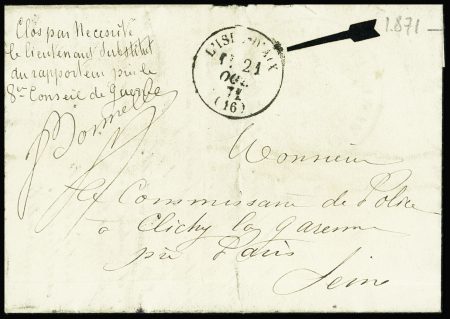 Clos par Nécessité
le lieutenant substitut
du rapporteur près le
8e Conseil de Guerre
1.871
L'ISLE
21
OCT
71
(16)
Monsieur
le Commissaire de Police
à Clichy la garenne
près Paris
Seine